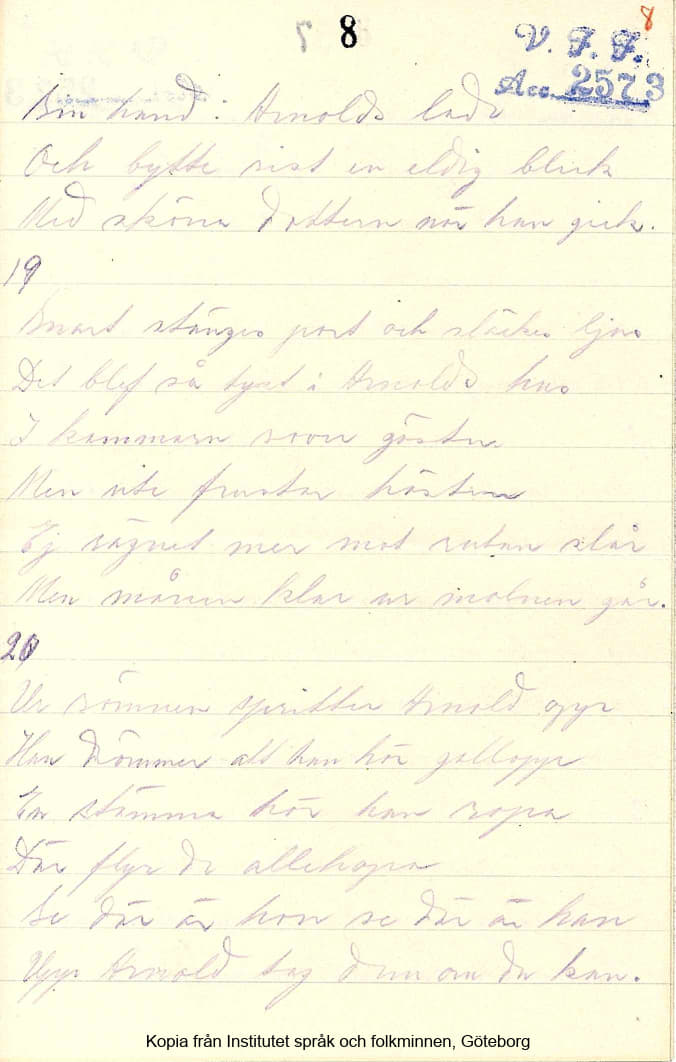 8
8
V. F. F.
Acc. 2573
Sin hand i Arnolds lade
Och bytte sist en eldig blick
Med sköna dottern när han gick.
19
Snart stänges port och släckes ljus
Det blef så tyst i Arnolds hus
I kammarn sover gästen
Men ute frustar hästen
Ej rägnet mer mot rutan slår
Men månen klar ur molnen går.
20
Ur sömnen spritter Arnold opp
Han drömmer att han hör gallopp
En stämma hör han ropa
Där flyr de allihopa
Se där är hon se där är han
Upp Arnold tag dem om du kan.
Kopia från Institutet språk och folkminnen, Göteborg